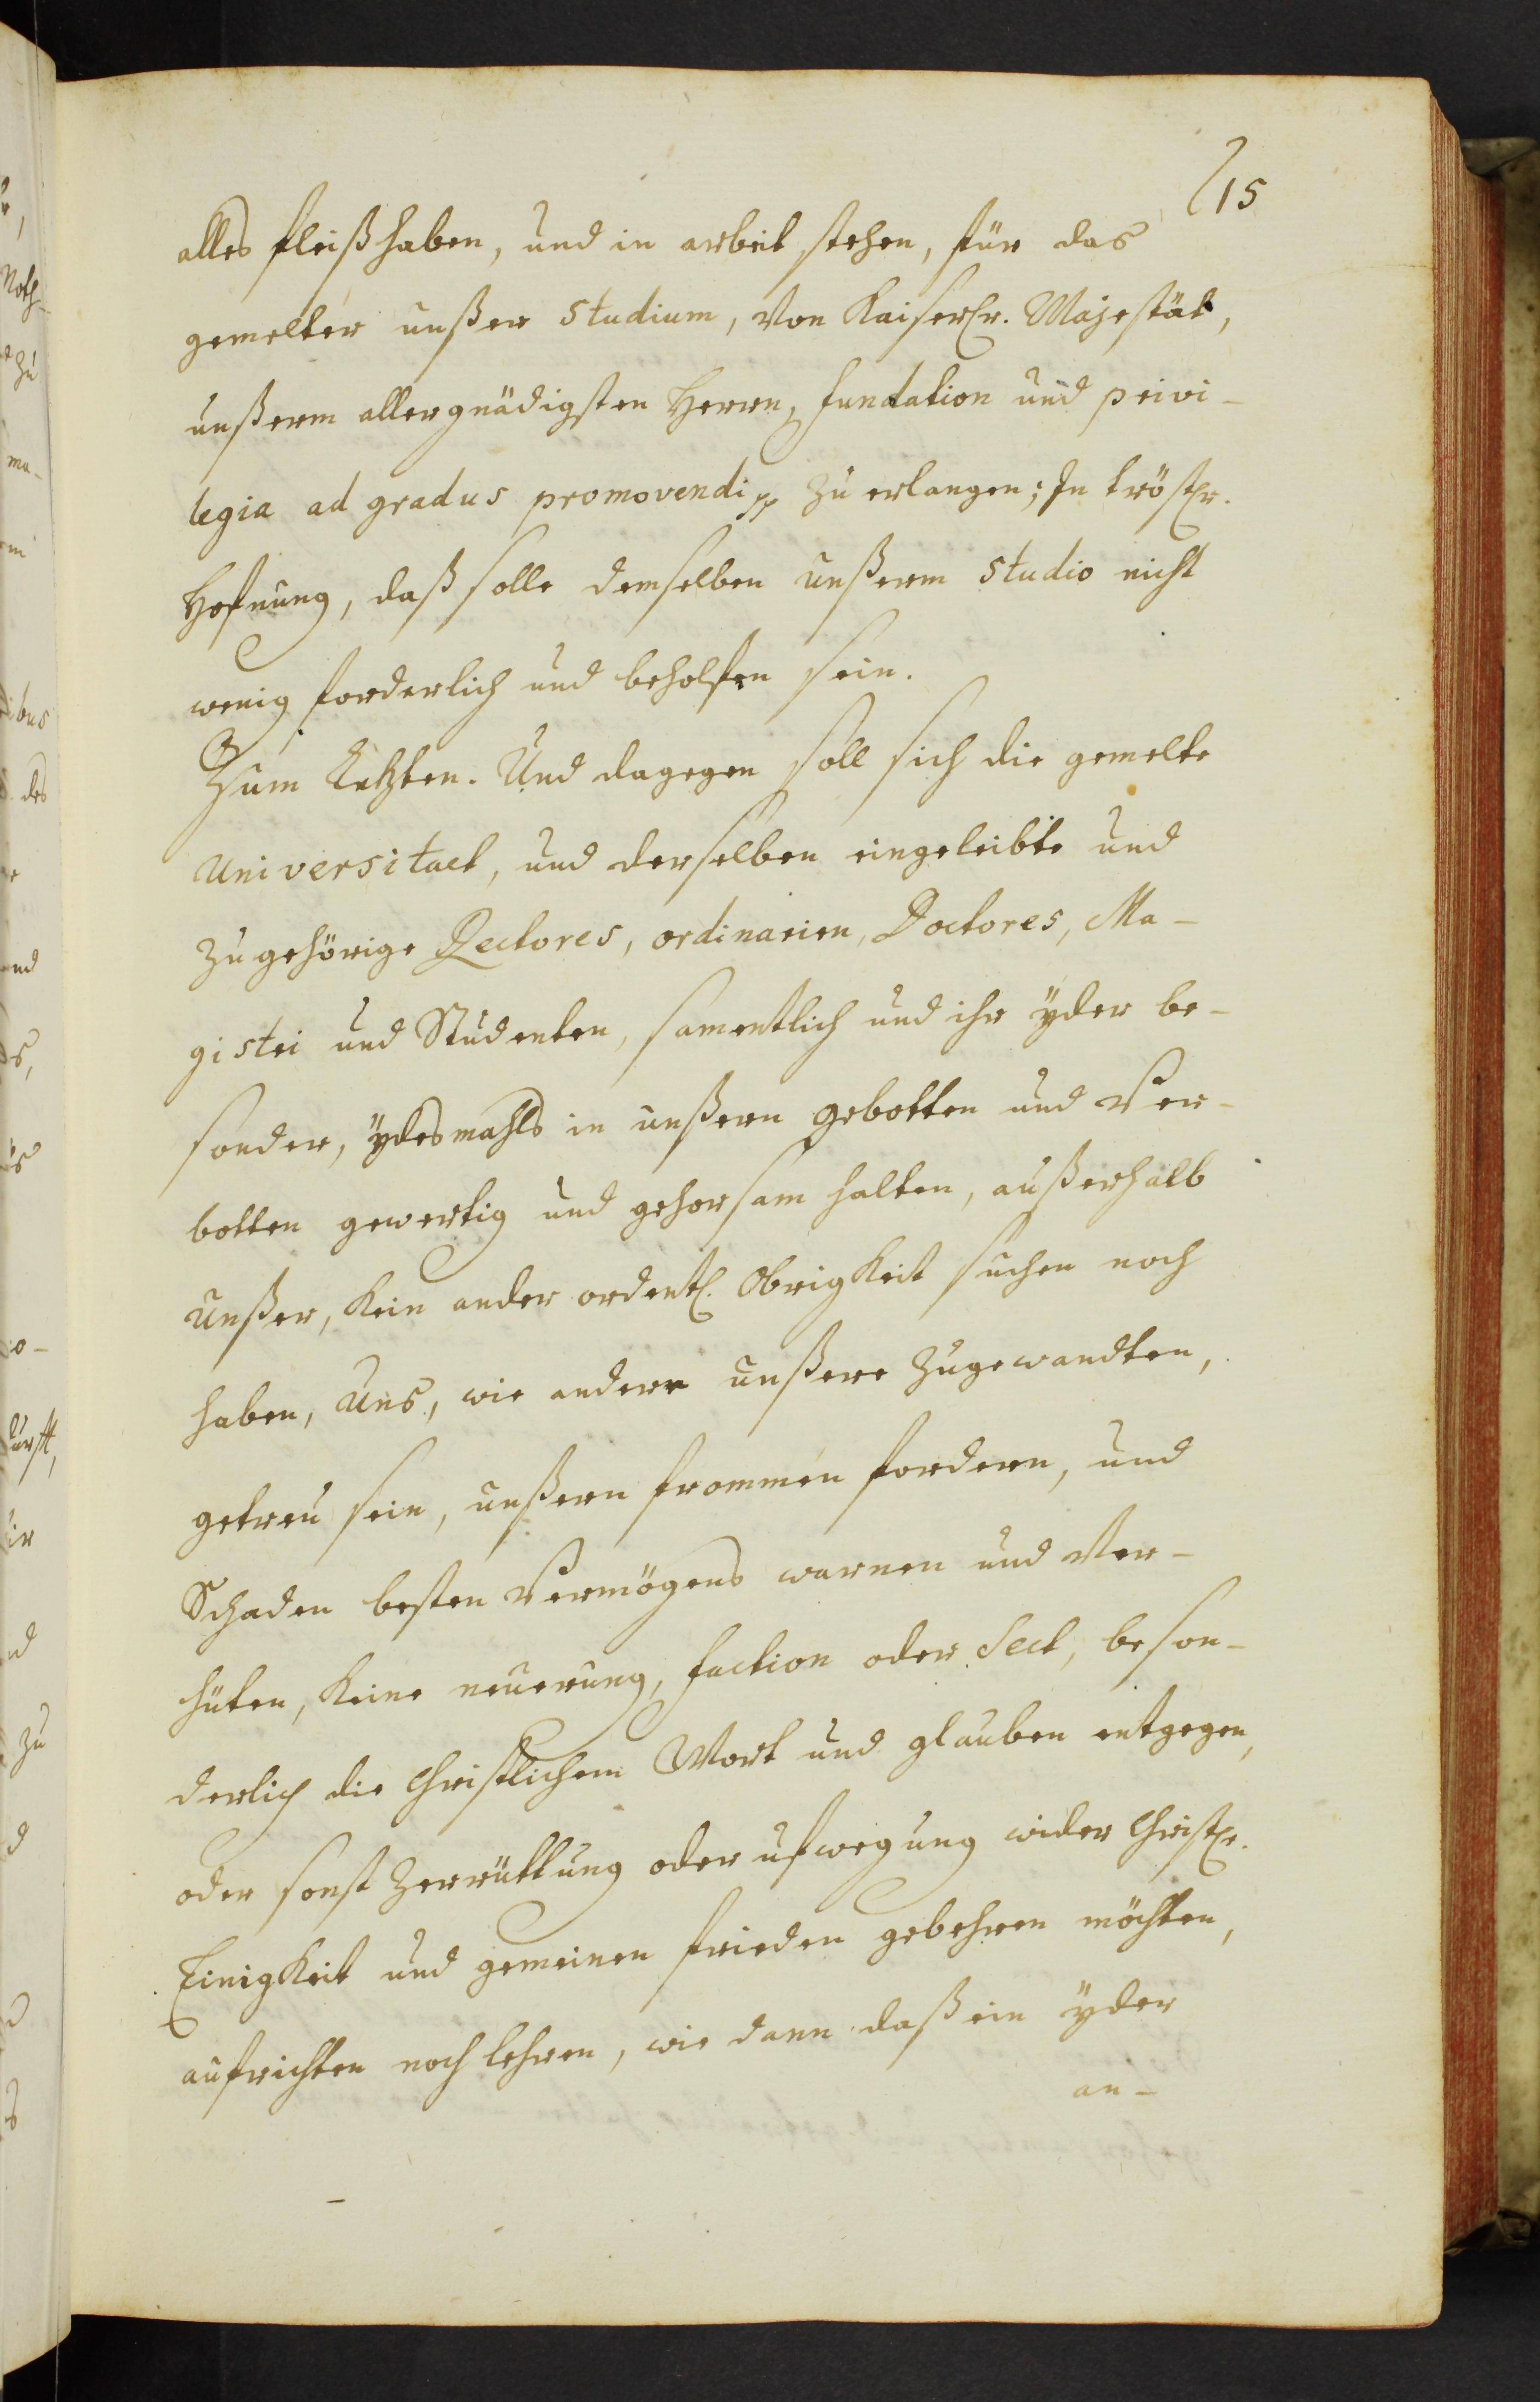 15
alles fleiß haben, und in arbeit stehen, für das
gemelter unßer studium, von Kaiserlr. Majestät,
unßerm allergnädigsten Herrn, fundation und privi-
legia ad gradus promovendi pp zu erlangen; In tröstlr.
Hofnung, daß solle demselben unßerm studio nicht
wenig forderlich und beholfen sein.
Zum Letzten. Und dagegen soll sich die gemelte
Universitaet, und derselben eingeleibte und
zugehörige Rectores, ordinarien, Doctores, Ma-
gistri und Studenten, samentlich und ihr yder be-
sonder, ydesmahls in unßern gebotten und Ver-
botten gewertig und gehorsam halten, außerhalb
unßer, kein ander ordentl. Obrigkeit suchen noch
haben, Uns, wie andere unßere zugewandten,
getreu sein, unßern frommen fordern, und
Schaden besten Vermögens warnen und ver-
hüten, keine neuerung, faction oder Sect, beson-
derlich die Christlichem Wort und glauben entgegen,
oder sonst zerrüttung oder ufwegung wider Christlr.
Einigkeit und gemeinen frieden gebehren möchten,
aufrichten noch lehren, wie dann daß ein yder
an-